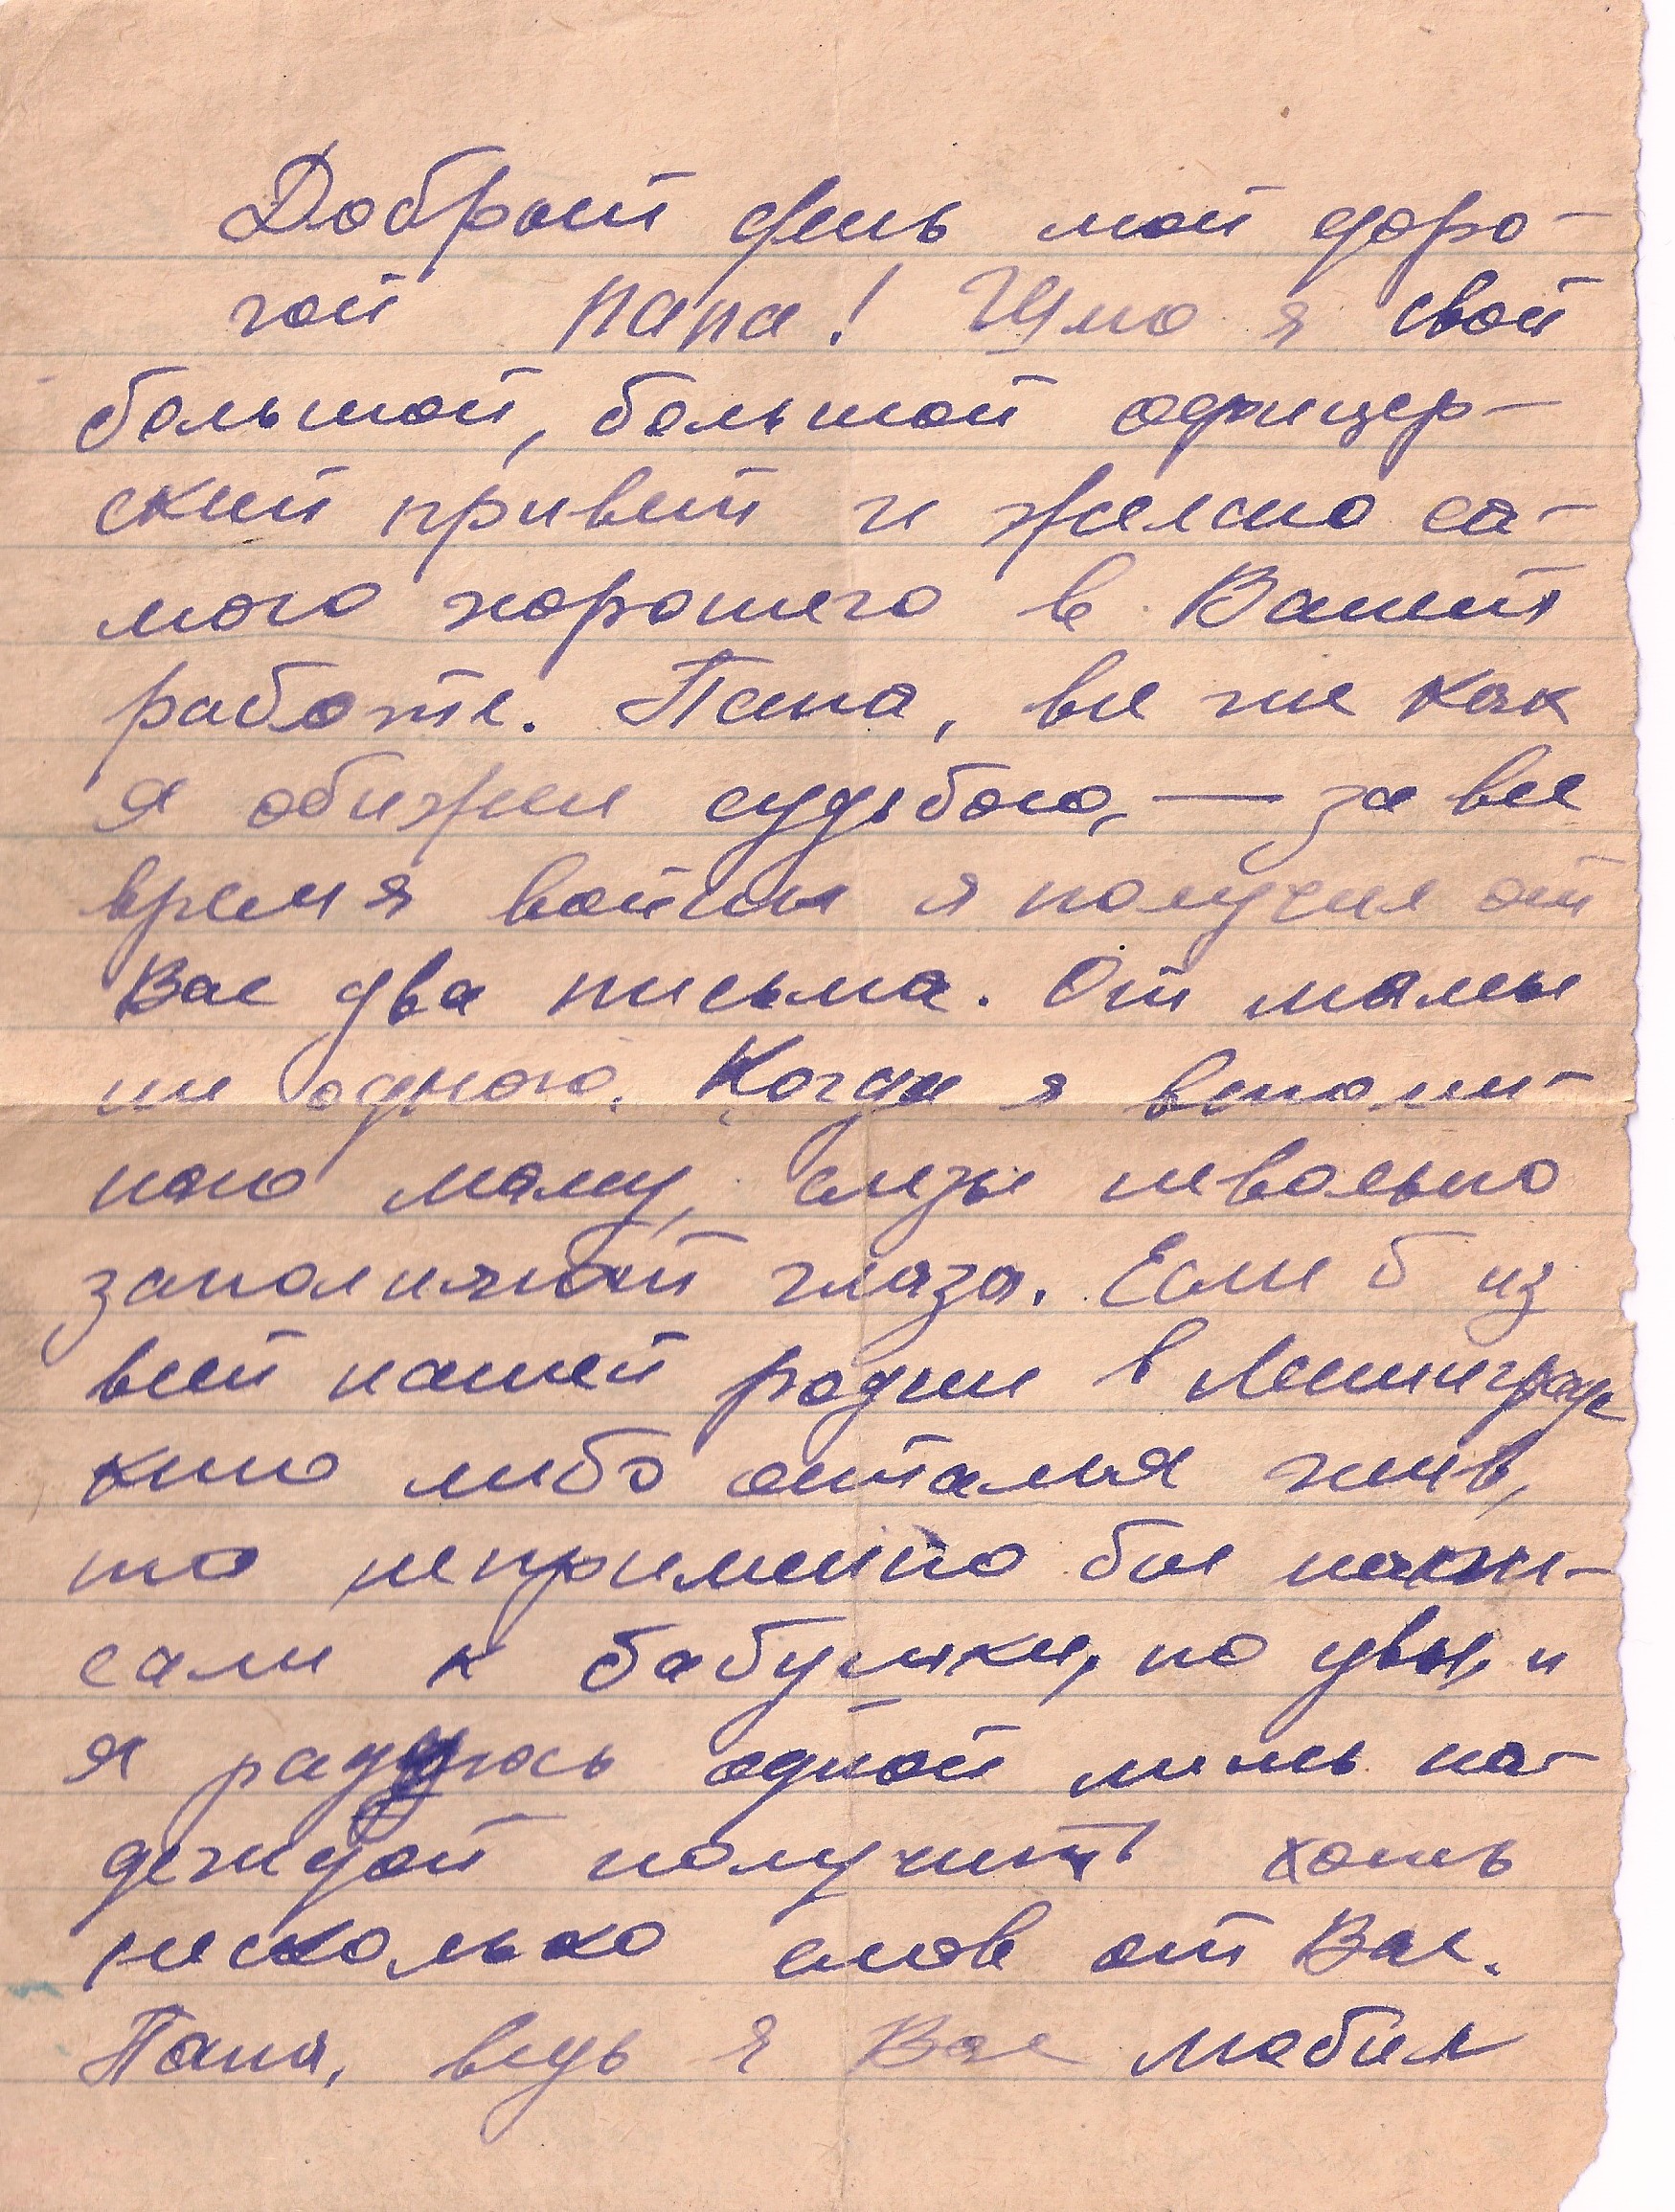 Добрый день мой доро-
гой папа! Шлю я свой
большой, большой офицер-
ский привет и желаю са-
мого хорошего в Вашей
работе. Папа, все же как
я обижен судьбою, — за все
время войны я получил от
Вас два письма. От мамы
ни одного. Когда я вспоми-
наю маму, слезы невольно
заполняют глаза. Если б из
всей нашей родни в Ленинграде
кто либо остался жив,
то неприменно бы напи-
сали к бабушки, но увы, и
я радуюсь одной лишь на-
деждой получить хоть
несколько слов от Вас.
Папа, ведь я Вас любил